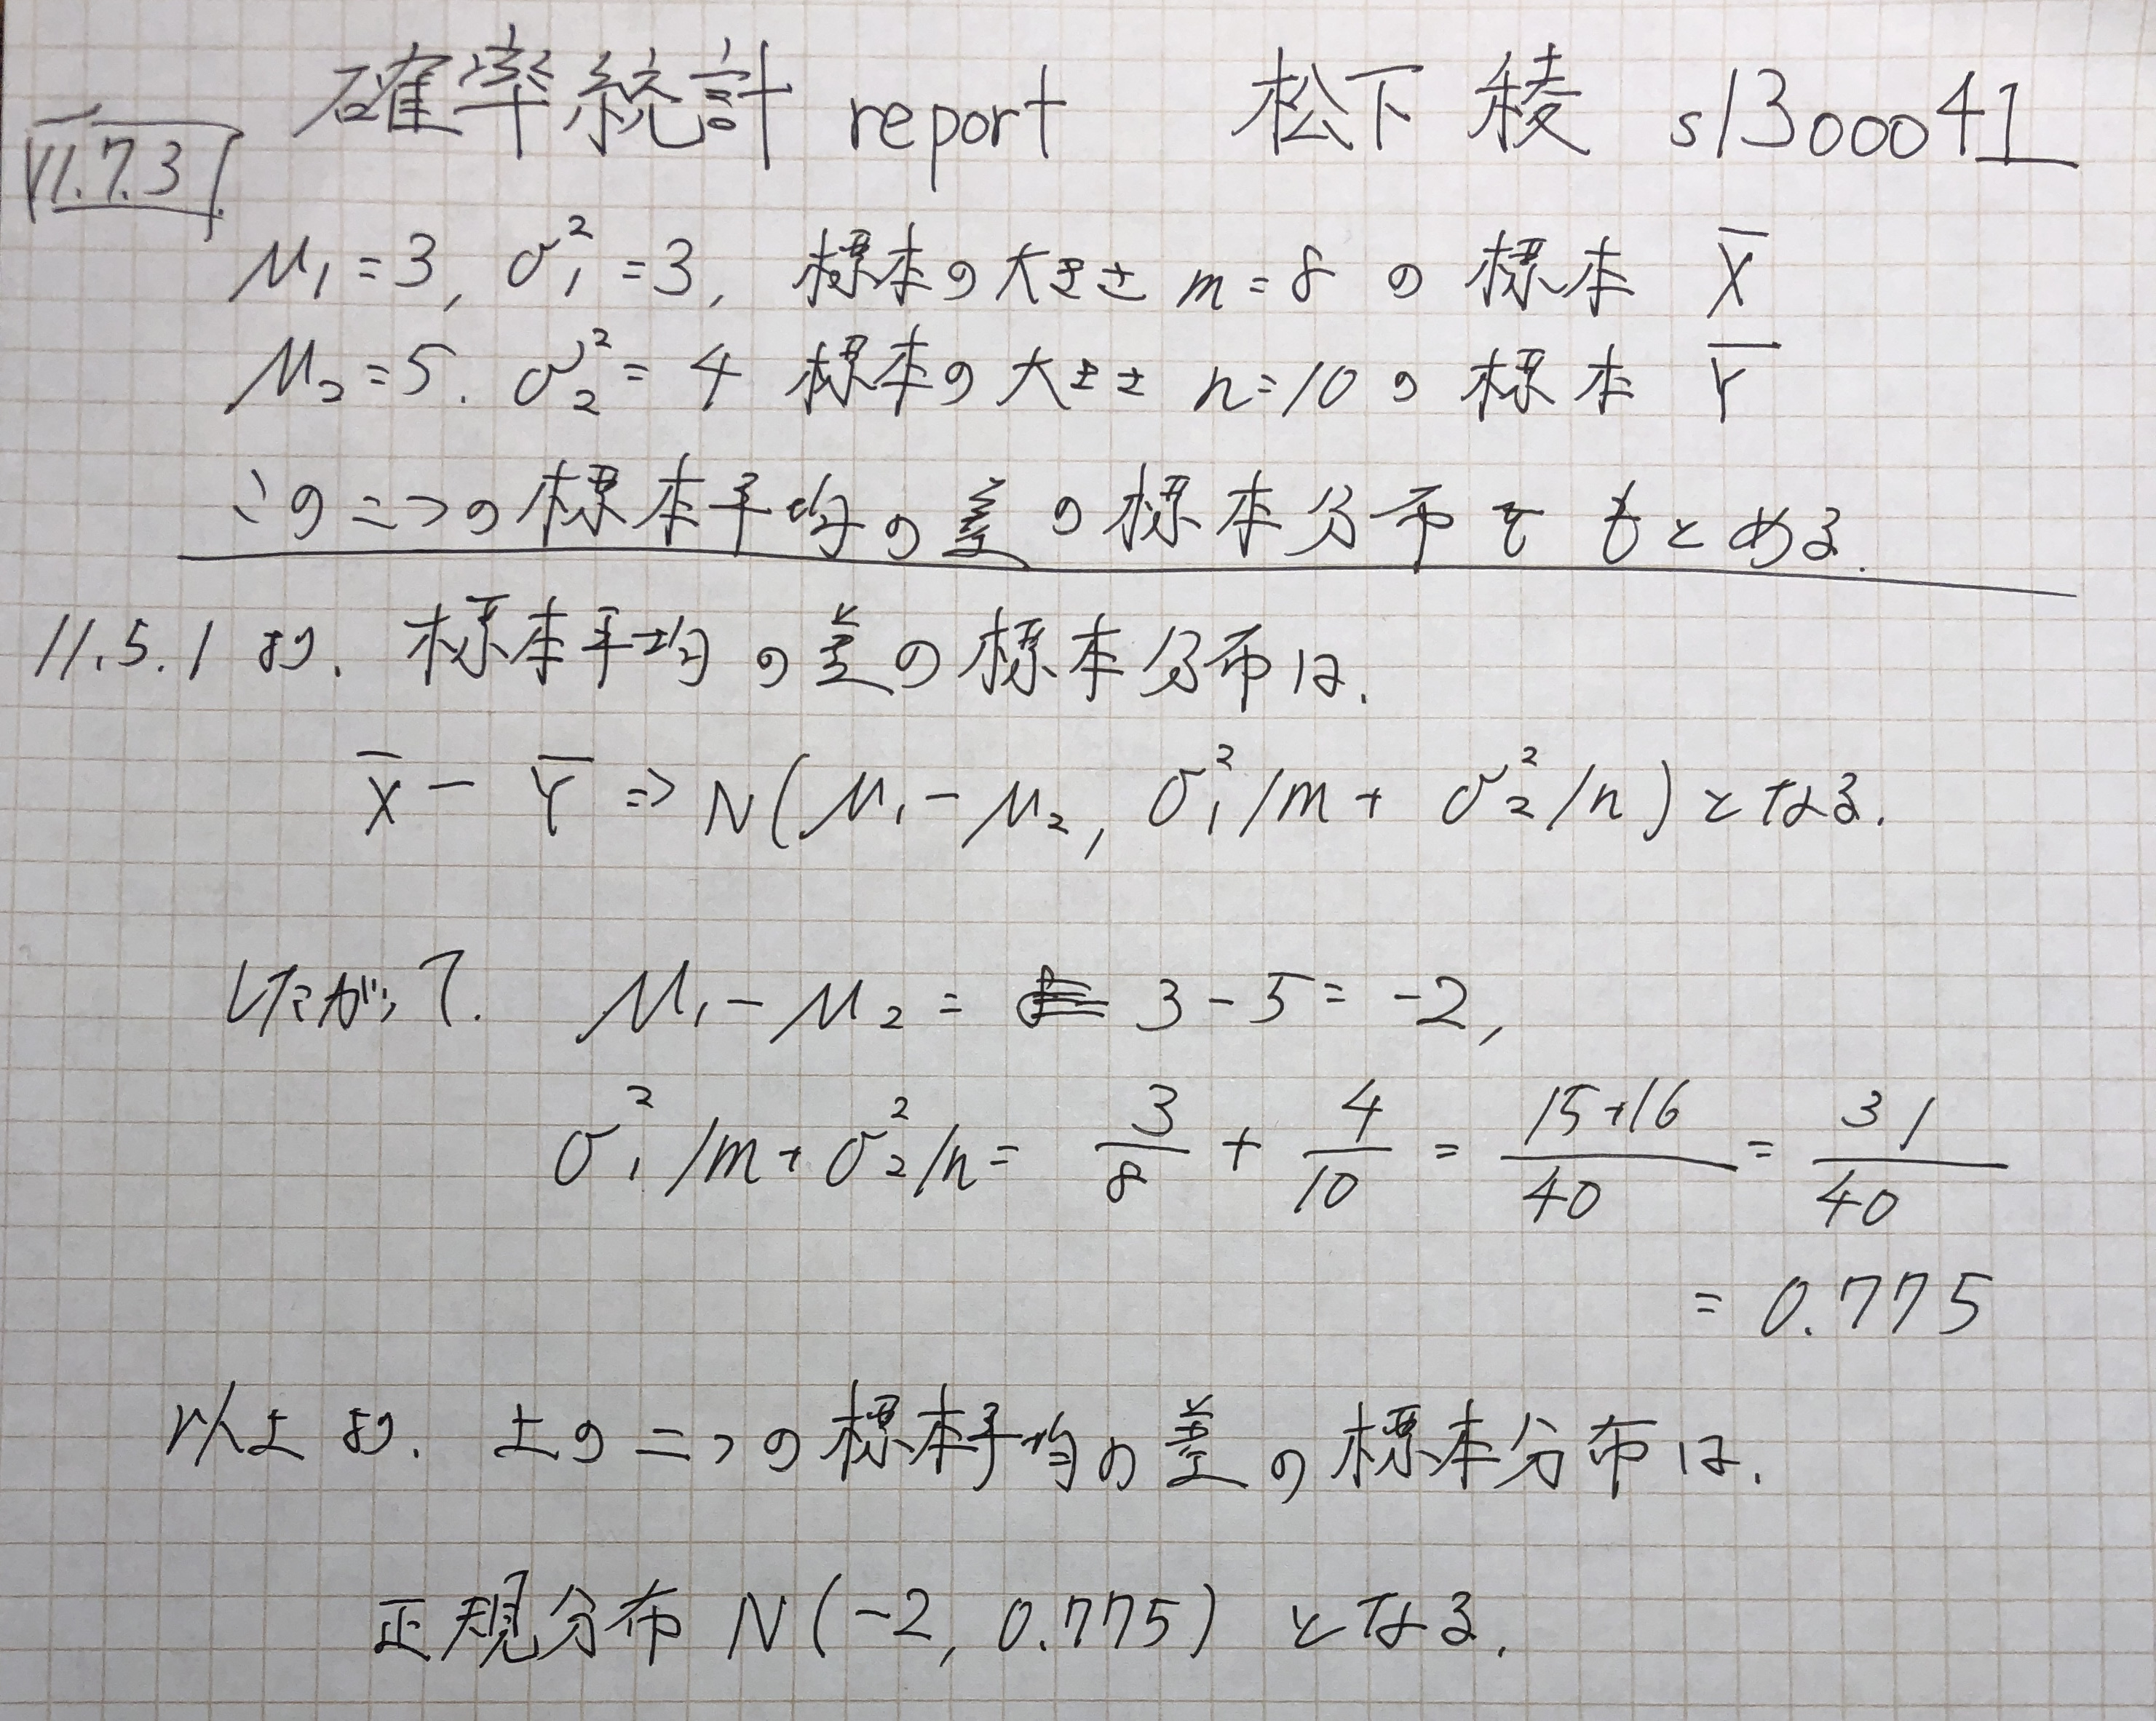 確率統計 report 松下 稜 s1300041
11.7.3
μ₁=3, σ₁²=3, 標本の大きさ m=8 の 標本 X̅
μ₂=5. σ₂²=4 標本の大きさ n=10 の 標本 Y̅
この二つの標本平均の差の標本分布をもとめる.
11.5.1 より. 標本平均の差の標本分布は.
X̅ - Y̅ ⇒ N(μ₁-μ₂, σ₁²/m + σ₂²/n) となる.
したがって. μ₁-μ₂ = 3-5 = -2,
σ₁²/m + σ₂²/n = 3/8 + 4/10 = 15+16/40 = 31/40
= 0.775
以上より. 上の二つの標本平均の差の標本分布は.
正規分布 N(-2, 0.775) となる.